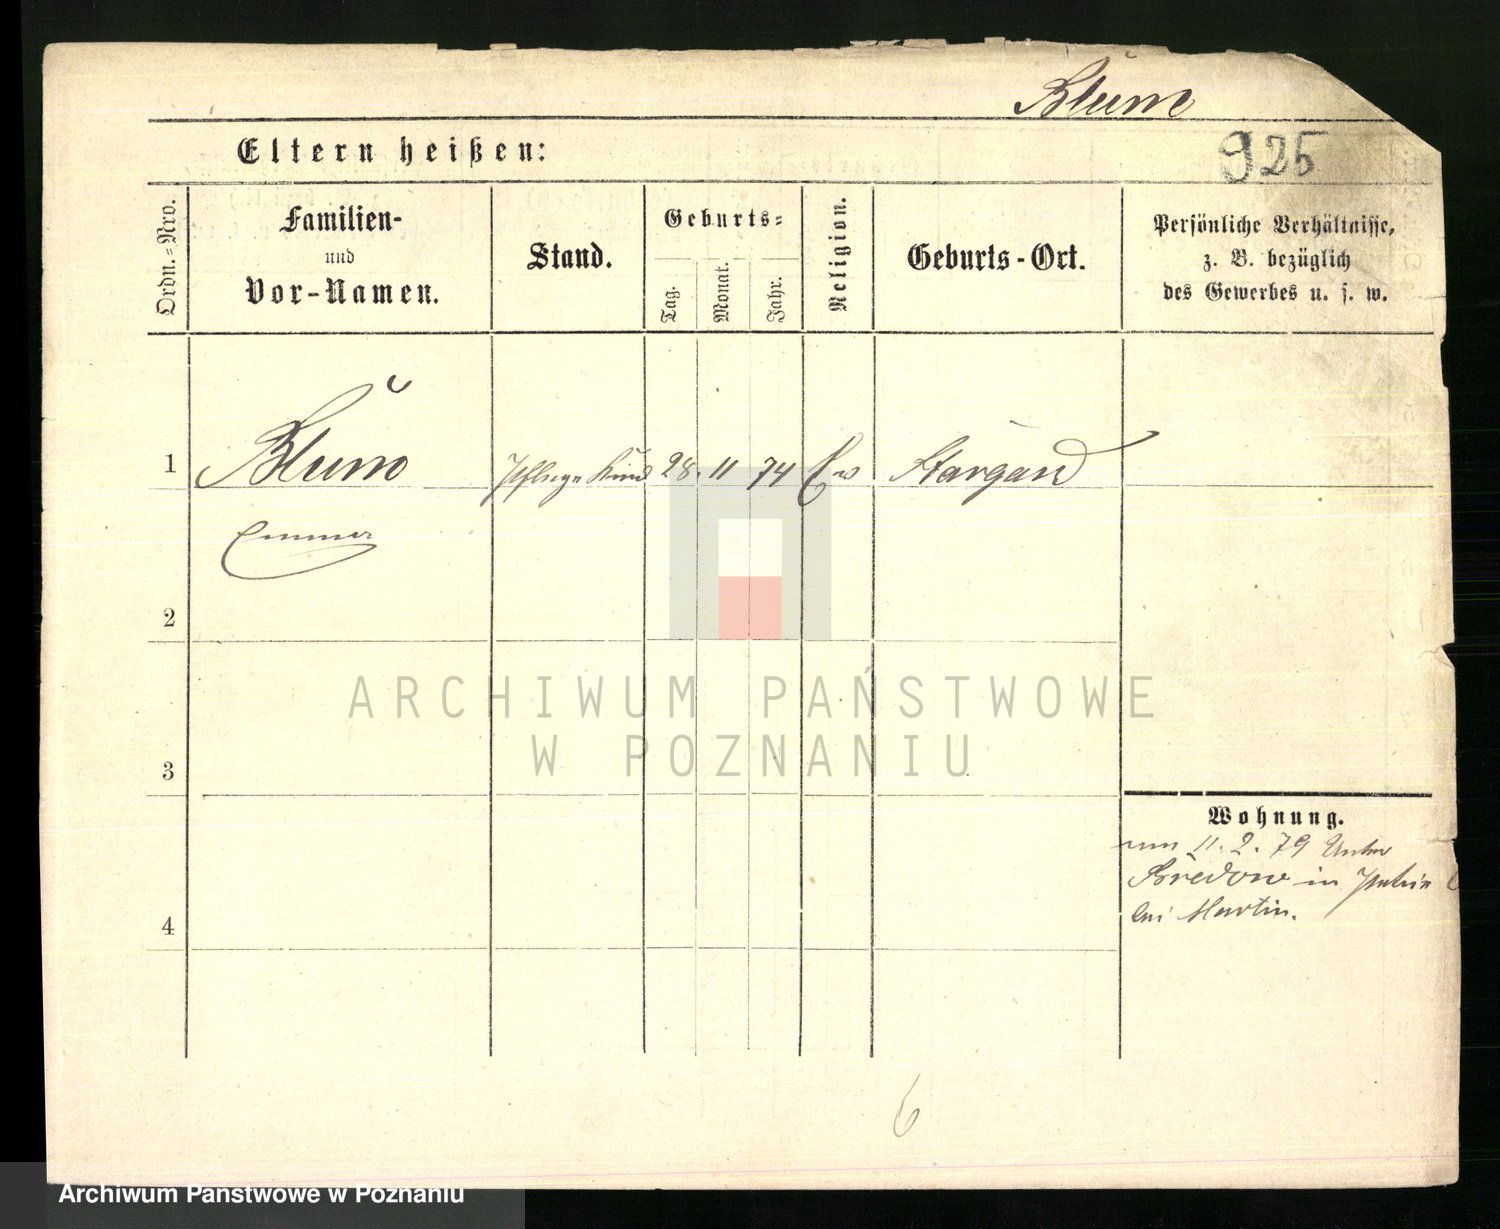 Blum
925
Eltern heißen:
Ordn.-Nro.
Familien-
und
Vor-Namen.
Stand.
Geburts-
Tag.
Monat.
Jahr.
Religion.
Geburts-Ort.
Persönliche Verhältnisse,
z. B. bezüglich
des Gewerbes u. s. w.
1 Blum Pflege Kind 28. 11 74 Ev Stargard
2
3
4
Wohnung.
11. 2. 79 Unter
Bredow in
bei Martin.
6
ARCHIWUM PAŃSTWOWE
W POZNANIU
Archiwum Państwowe w Poznaniu